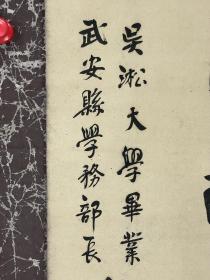 吴淞大學畢業
武安縣學務部长